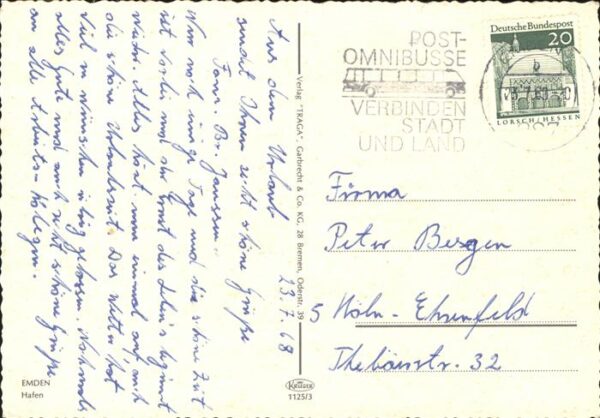 Aus dem Urlaub 23.7.68
sendet Ihnen recht schöne Grüße
Fam. Br. Janssen.
Nur noch einige Tage und die schöne Zeit
ist vorbei und der Ernst des Lebens beginnt
wieder. Alles hört nun einmal auf, auch
die schöne Urlaubszeit. Das Wetter hat
viel zu wünschen übrig gelassen. Nochmals
alles Gute und auch recht schöne Grüße
an alle Kollegen.
EMDEN
Hafen
Verlag "TRAGA", Garbrecht & Co. KG, 28 Bremen, Oderstr. 39
Krüger
1125/3
POST-
OMNIBUSSE
VERBINDEN
STADT
UND LAND
Deutsche Bundespost
20
LORSCH/HESSEN
Firma
Peter Bergen
5 Köln-Ehrenfeld
Thebäerstr. 32